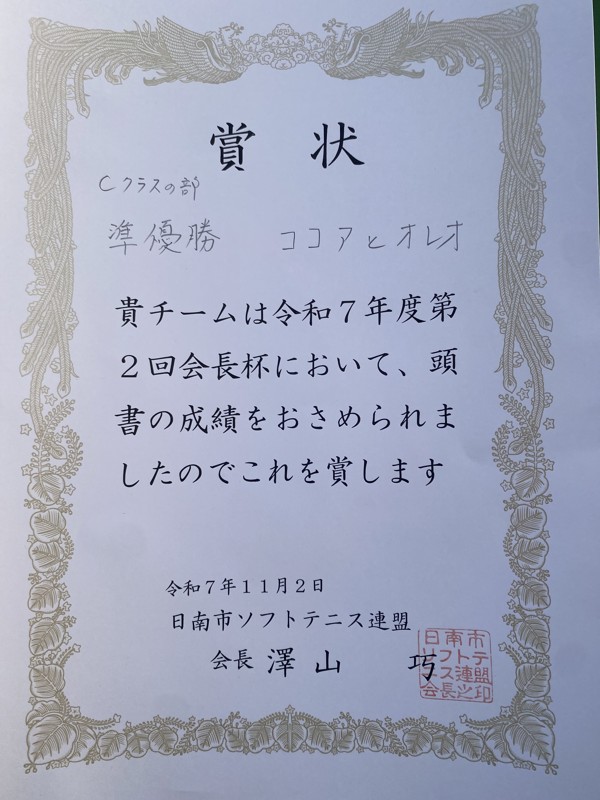 賞状
Cクラスの部
準優勝 ココアとオレオ
貴チームは令和7年度第
2回会長杯において、頭
書の成績をおさめられま
したのでこれを賞します
令和7年11月2日
日南市ソフトテニス連盟
会長 澤山 巧
日南市
ソフトテ
ニス連盟
会長之印